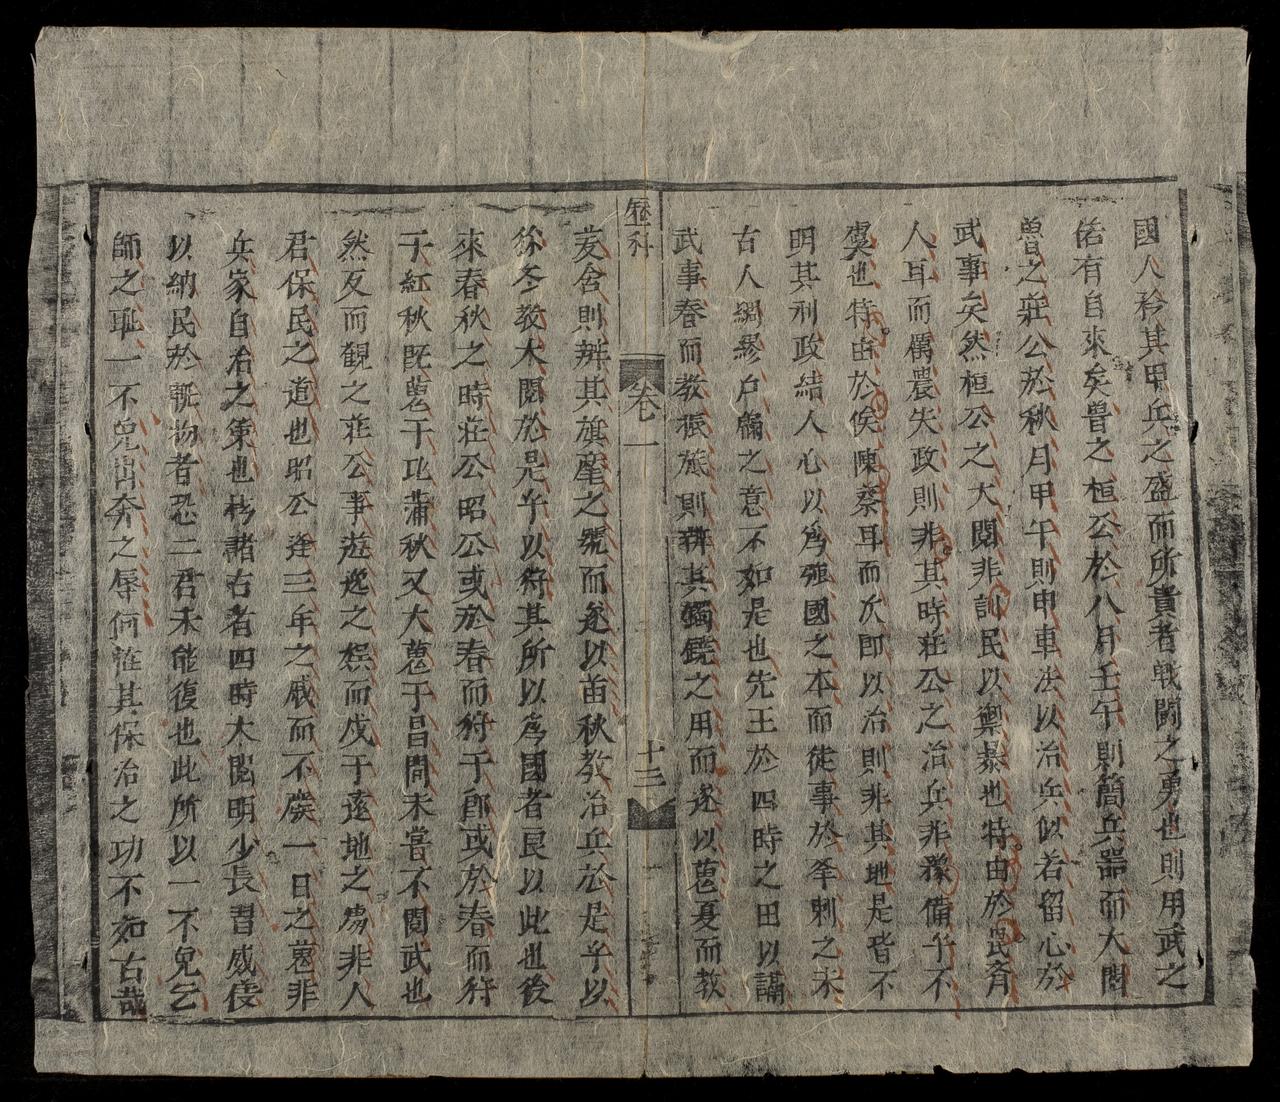 國人矜其甲兵之盛而所貴者戰鬪之勇也則用武之
俗有自來矣曾之桓公於八月壬午則簡兵器而大閱
曾之莊公於秋月甲午則申車法以治兵似若留心於
武事矣然桓公之大閱非訓民以禦暴也特由於畏齊
人耳而僞農失政則非其時莊公之治兵非豫備乎不
虞也特由於俟陳蔡耳而次郎以治則非其地是皆不
明其利政結人心以爲強國之本而徒事於擊刺之末
古人綢繆户牖之意不如是也先王於四時之田以講
武事春而教振旅則辨其鐲鐃之用而遂以蒐夏而教
歷科 卷一 十三
茇舍則辨其旗麾之號而遂以苗秋教治兵於是乎以
狝冬教大閱於是乎以狩其所以爲國者良以此也後
來春秋之時莊公昭公或於春而狩于郎或於春而狩
于紅秋既蒐于比蒲秋又大蒐于昌間未嘗不閱武也
然反而観之莊公事遊逸之娯而戍于遠地之虜非人
君保民之道也昭公逢三年之慼而不廢一日之蒐非
兵家自治之策也於諸古者四時大閱明少長習威儀
以納民於軌物者恐二君未能復也此所以一不免乞
師之耻一不免出奔之辱何惟其保治之功不如古哉